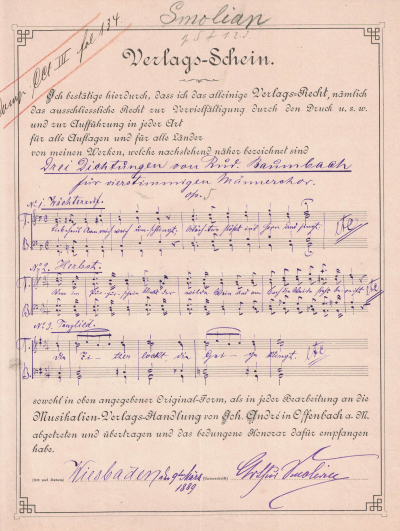 Smolian
Oct III fol 134
Verlags-Schein.
Ich bestätige hierdurch, dass ich das alleinige Verlags-Recht, nämlich
das ausschliessliche Recht zur Vervielfältigung durch den Druck u. s. w.
und zur Aufführung in jeder Art
für alle Auflagen und für alle Länder
von meinen Werken, welche nachstehend näher bezeichnet sind
Drei Dichtungen von Rud. Baumbach
für vierstimmigen Männerchor.
op. 5
No. 1.
T.
B.
No. 2. Herbst.
T.
B.
No. 3. Tanzlied.
T.
lockt die
B.
sowohl in oben angegebener Original-Form, als in jeder Bearbeitung an die
Musikalien-Verlags-Handlung von Joh. André in Offenbach a. M.
abgetreten und übertragen und das bedungene Honorar dafür empfangen
habe.
(Ort und Datum) Wiesbaden, den 9. März (Unterschrift) Arthur Smolian
1889